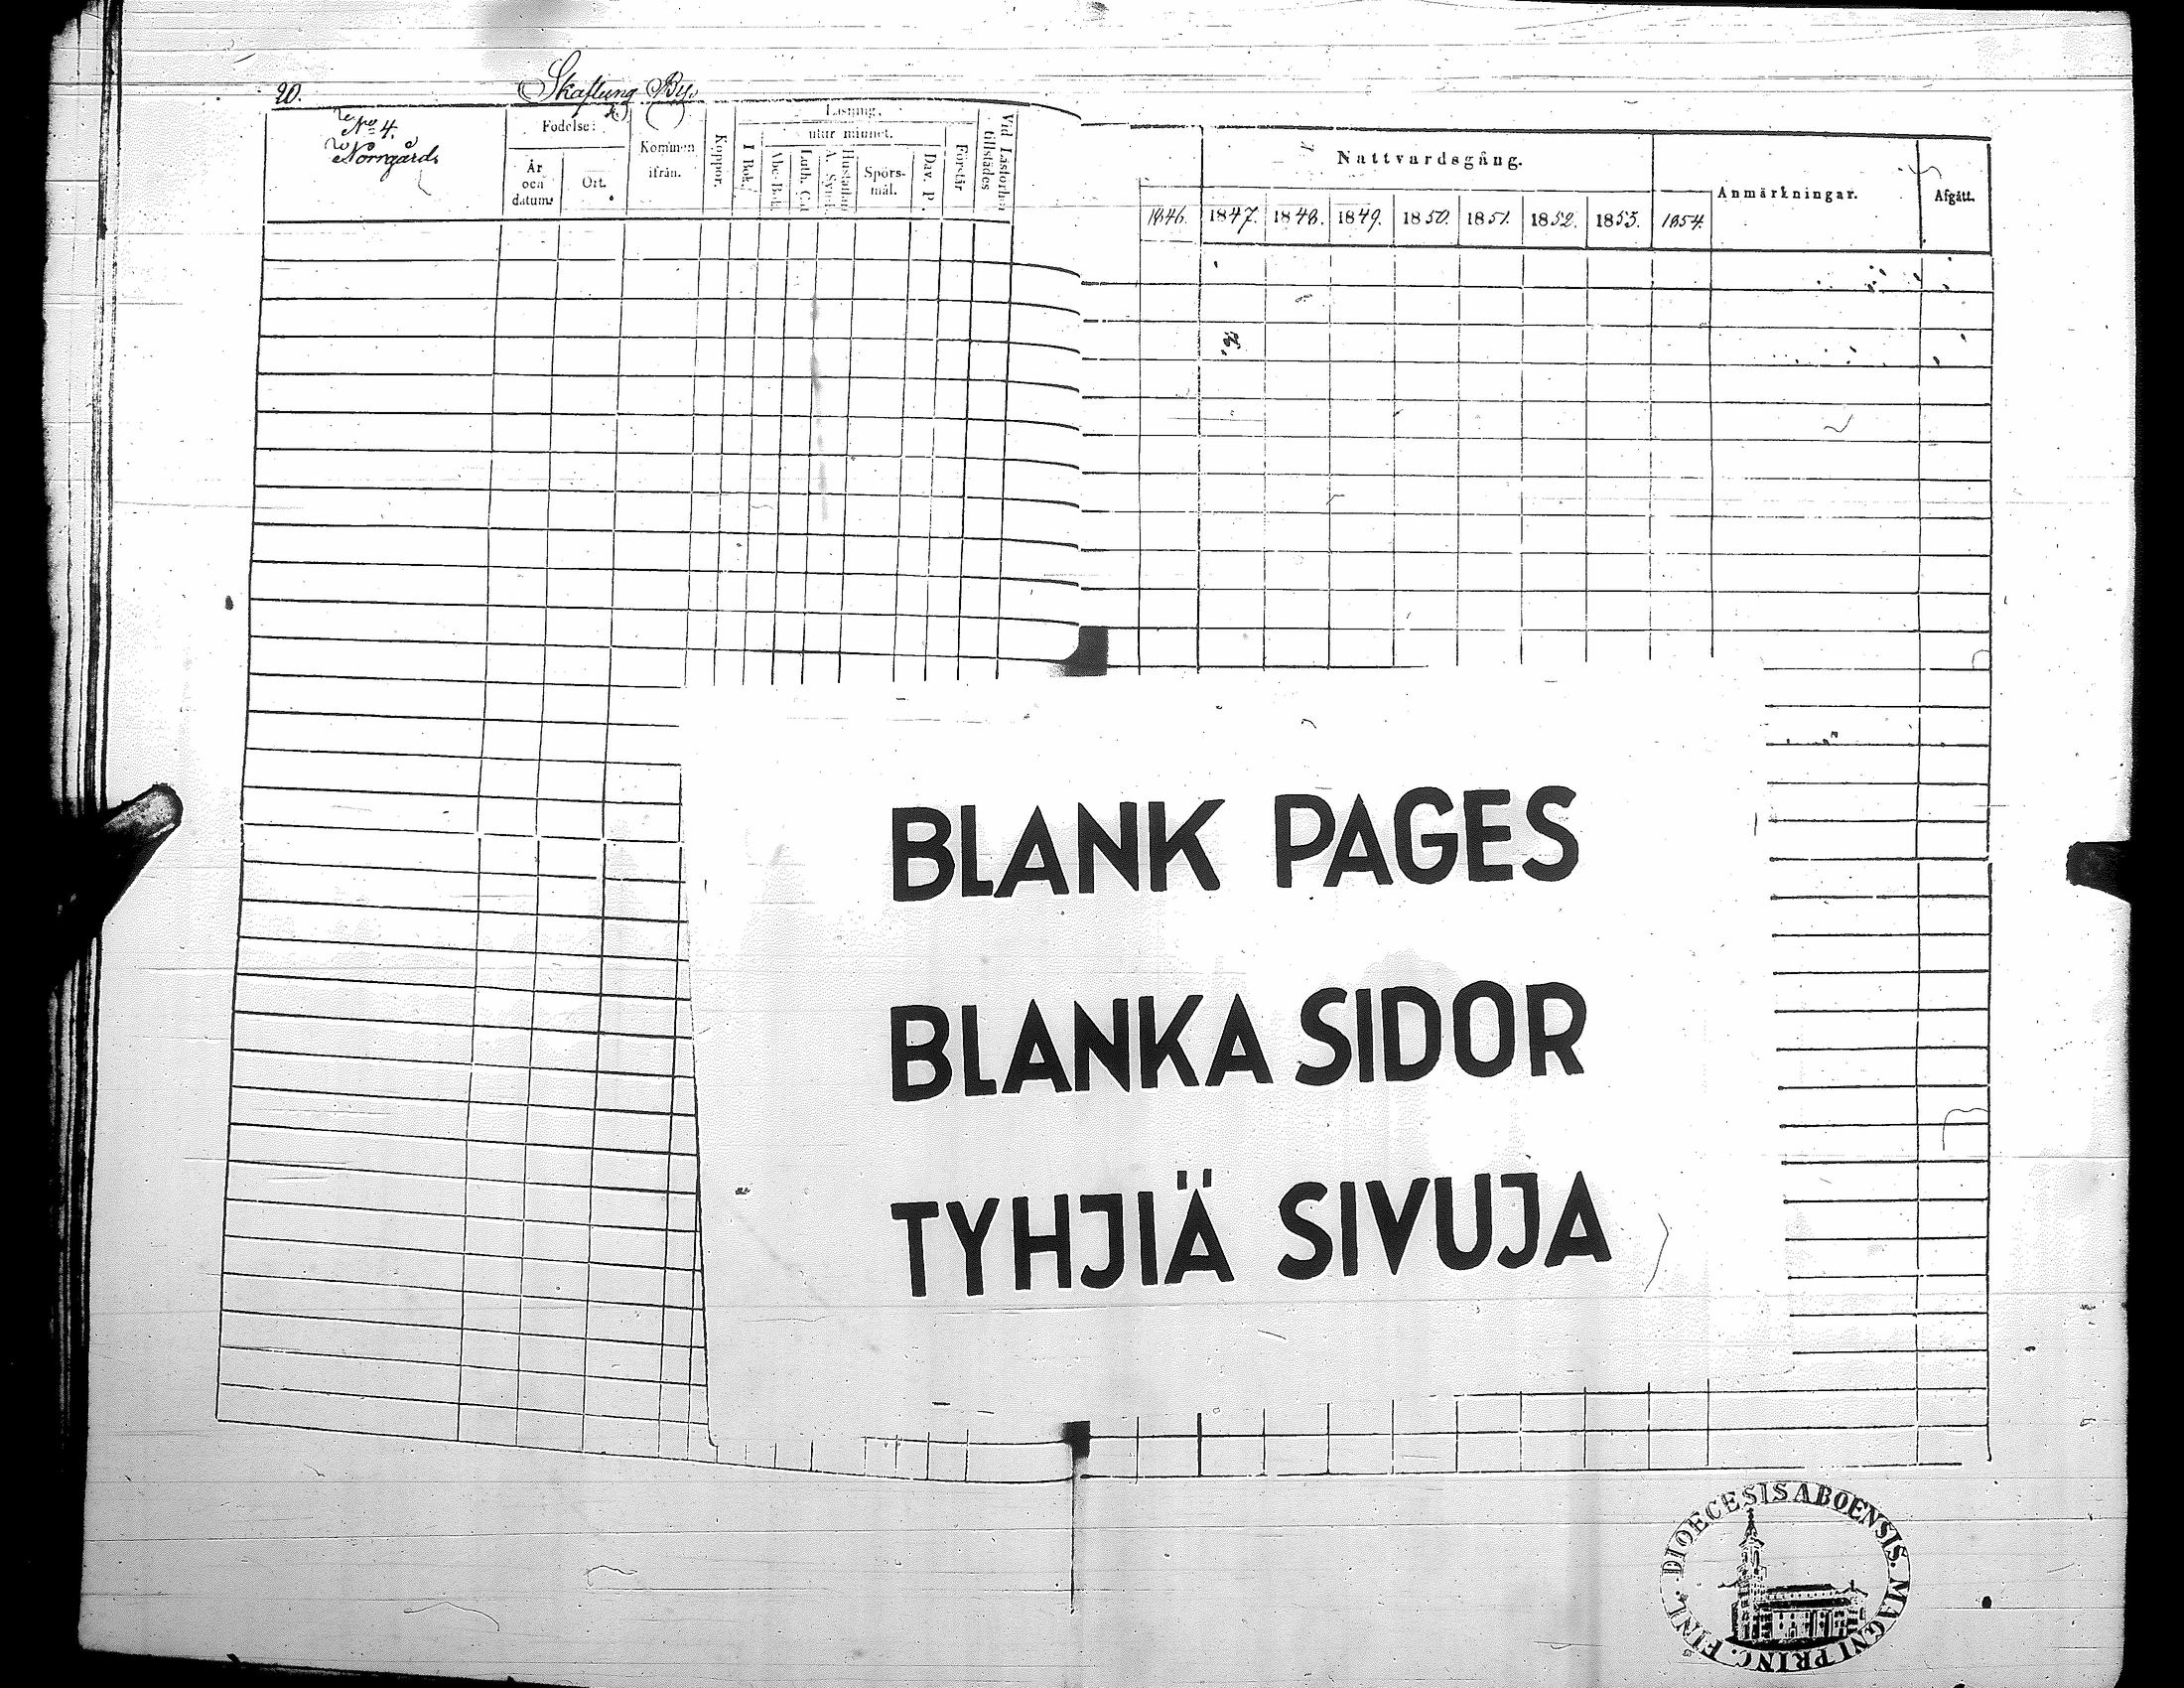 20. Skaftung By.
No 4.
Norrgård
Födelse:
År och datum.
Ort.
Kommen ifrån.
Koppor.
Läsning.
I Bok.
utur minnet.
Abc-Bok.
Luth. Cat
A. Symb.
Hustaflan
Spörs-mål.
Dav. P.
Förstår
Vid Läsförhör tillstädes
Nattvardsgång.
1846. 1847. 1848. 1849. 1850. 1851. 1852. 1853. 1854.
Anmärkningar.
Afgått.
BLANK PAGES
BLANKA SIDOR
TYHJIÄ SIVUJA
DIOECESIS ABOENSIS. MAGNI PRINC. FINL.